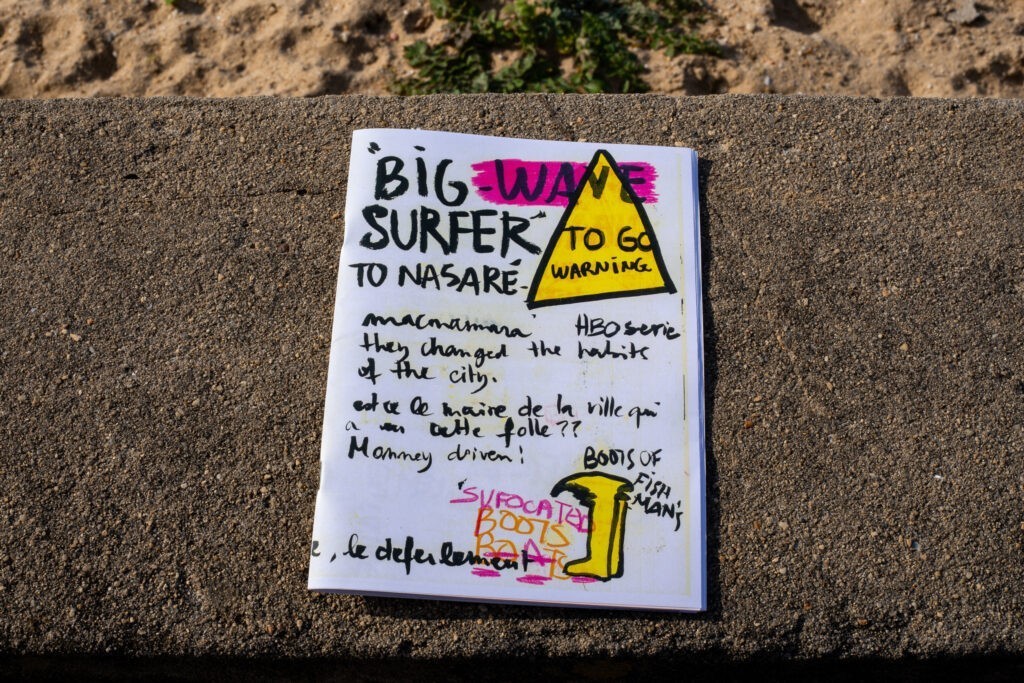 "BIG-WAVE
SURFER"
TO NASARÉ-
TO GO
WARNING
macnamara HBO serie
they changed the habits
of the city.
est ce le maire de la ville qui
a cette folle??
Monney driven!
BOOTS OF
FISH
MAN'S
"SUFOCATED
BOOTS
BOATS
e, le deferlement